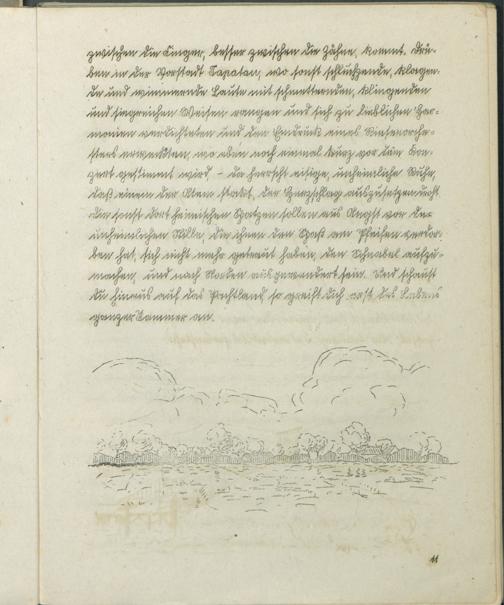 zwischen die Finger, besser zwischen die Zähne, kommt. Drü-
ben in der Vorstadt Sapatan, wo sonst schluchzende, klagen-
de und wimmernde Laute mit schmetternden, klingenden
und siegreichen Weisen rangen und sich zu lieblichen Har-
monien verdichteten und den Eindruck eines Riesenorche-
sters erweckten, wo eben noch einmal kurz vor dem Kon-
zert gestimmt wird, – da herrscht eisige, unheimliche Ruhe,
daß einem der Atem stockt, der Herzschlag auszusetzen droht.
Die sonst dort heimischen Spatzen sollen aus Angst vor der
unheimlichen Stille, die ihnen den Spaß am Pfeifen verdor-
ben hat, sich nicht mehr getraut haben, den Schnabel aufzu-
machen, und nach ausgewandert sein. Und schaust
Du hinaus auf das Pachtland, so greift Dich erst des Lebens
ganzer Jammer an.
11